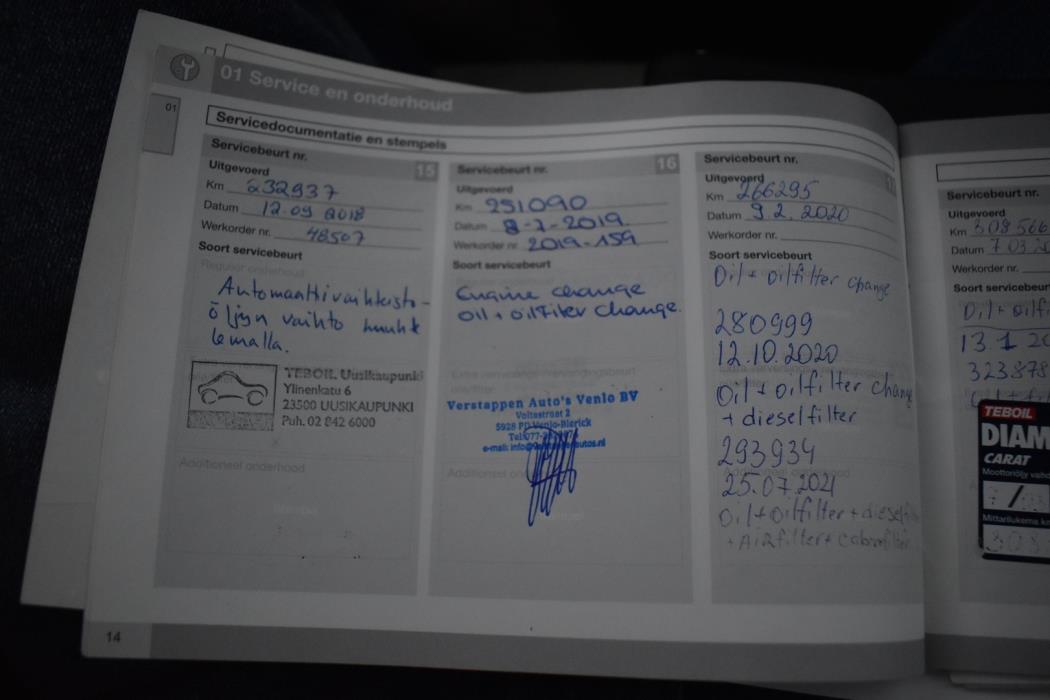 01 Service en onderhoud
01
Servicedocumentatie en stempels
Servicebeurt nr.
15
Uitgevoerd
Km 232937
Datum 12.09 2018
Werkorder nr. 48507
Soort servicebeurt
Regulier onderhoud
Automaattivaihteisto-
öljyn vaihto huuhte
lemalla.
TEBOIL Uusikaupunki
Ylinenkatu 6
23500 UUSIKAUPUNKI
Puh. 02 842 6000
Additioneel onderhoud
Servicebeurt nr.
16
Uitgevoerd
Km 251090
Datum 8-7-2019
Werkorder nr. 2019-159
Soort servicebeurt
Engine change
Oil + oilfilter change.
Verstappen Auto's Venlo BV
Voltastraat 2
5928 PD Venlo-Blerick
Servicebeurt nr.
Uitgevoerd
Km 266295
Datum 9 2. 2020
Werkorder nr.
Soort servicebeurt
Oil + oilfilter change
280999
12.10.2020
Oil + oilfilter change
+ dieselfilter
293934
25.07.2021
Oil + Oilfilter + diesel
+ Airfilter +
Servicebeurt nr.
Uitgevoerd
Km 308566
Datum 7 03.20
Werkorder nr.
Soort servicebeur
Oil + oilfi
13.1 20
323878
TEBOIL
DIAM
CARAT
Moottoriöljy vaihd
Mittarilukema k
308
14